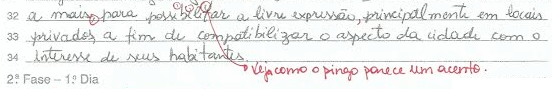 32 a mais, para possibilitar a livre expressão, principalmente em locais
33 privados a fim de compatibilizar o aspecto da cidade com o
34 interesse de seus habitantes.
Veja como o pingo parece um acento.
2ª Fase – 1º Dia